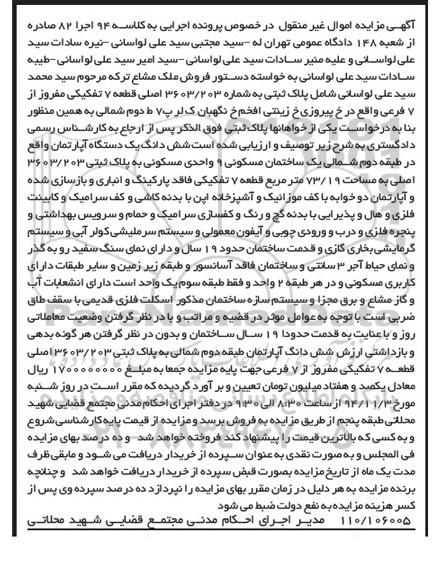 آگهـی مزایده اموال غیر منقول در خصوص پرونده اجرایی به کلاسـه ۹۴ اجرا ۸۲ صادره
از شعبه ۱۴۸ دادگاه عمومی تهران له -سید مجتبی سید علی لواسانی -نیره سادات سید
علی لواسـانی و علیه منیر سـادات سید علی لواسانی -سید امیر سید علی لواسانی -طیبه
سـادات سید علی لواسانی به خواسته دسـتور فروش ملک مشاع ترکه مرحوم سید محمد
سید علی لواسانی شامل پلاک ثبتی به شماره ۳۶۰۳/۲۰۳ اصلی قطعه ۷ تفکیکی مفروز از
۷ فرعی واقع در خ پیروزی خ زینتی افخم خ نگهبان ک لر پ۷ ط دوم شمالی به همین منظور
بنا به درخواسـت یکی از خواهانها پلاک ثبتی فوق الذکر پس از ارجاع به کارشـناس رسمی
دادگستری به شرح زیر توصیف و ارزیابی شده است شش دانگ یک دستگاه آپارتمان واقع
در طبقه دوم شـمالی یک ساختمان مسکونی ۹ واحدی مسکونی به پلاک ثبتی ۳۶۰۳/۲۰۳
اصلی به مساحت ۷۳/۱۹ متر مربع قطعه ۷ تفکیکی فاقد پارکینگ و انباری و بازسازی شده
و آپارتمان دو خوابه با کف موزائیک و آشپزخانه اپن با بدنه کاشی و کف سرامیک و کابینت
فلزی و هال و پذیرایی با بدنه گچ و رنگ و کفسازی سرامیک و حمام و سرویس بهداشتی و
پنجره فلزی و درب و ورودی چوبی و آیفون معمولی و سیستم سرمایشی کولر آبی و سیستم
گرمایشی بخاری گازی و قدمت ساختمان حدود ۱۹ سال و دارای نمای سنگ سفید رو به گذر
و نمای حیاط آجر ۳ سانتی و ساختمان فاقد آسانسور و طبقه زیر زمین و سایر طبقات دارای
کاربری مسکونی و در هر طبقه ۲ واحد و فقط طبقه سوم یک واحد است دارای انشعابات آب
و گاز مشاع و برق مجزا و سیستم سازه ساختمان مذکور اسکلت فلزی قدیمی با سقف طاق
ضربی است با توجه به عوامل موثر در قضیه و مراتب و با در نظر گرفتن وضعیت معاملاتی
روز و با عنایت به قدمت حدودا ۱۹ سـال سـاختمان و بدون در نظر گرفتن هر گونه بدهی
و بازداشتی ارزش شش دانگ آپارتمان طبقه دوم شمالی به پلاک ثبتی ۳۶۰۳/۲۰۳ اصلی
قطعـه ۷ تفکیکی مفروز از ۷ فرعی جهت پایه مزایده جمعا به مبلـغ ۱۷۰۰۰۰۰۰۰۰ ریال
معادل یکصد و هفتاد میلیون تومان تعیین و بر آورد گردیده که مقرر اسـت در روز شـنبه
مورخ ۹۴/۱۱/۳ از ساعت ۸:۳۰ الی ۹:۳۰ در دفتر اجرای احکام مدنی مجتمع قضایی شهید
محلاتی طبقه پنجم از طریق مزایده به فروش برسد و مزایده از قیمت پایه کارشناسی شروع
و به کسی که بالاترین قیمت را پیشنهاد کند فروخته خواهد شد و ده درصد بهای مزایده
فی المجلس و به صورت نقدی به عنوان سـپرده از خریدار دریافت می شـود و مابقی ظرف
مدت یک ماه از تاریخ مزایده بصورت قبض سپرده از خریدار دریافت خواهد شد و چنانچه
برنده مزایده به هر دلیل در زمان مقرر بهای مزایده را نپردازد ده درصد سپرده وی پس از
کسر هزینه مزایده به نفع دولت ضبط می شود
۱۱۰/۱۰۶۰۰۵ مدیـر اجـرای احـکام مدنـی مجتمـع قضایـی شـهید محلاتـی